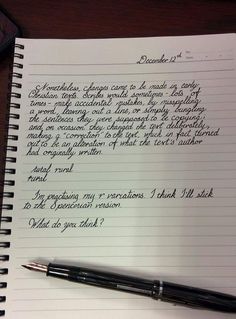 December 12nd
Nonetheless, changes came to be made in early
Christian texts. Scribes would sometimes - lots of
times - make accidental mistakes, by misspelling
a word, leaving out a line, or simply bungling
the sentences they were supposed to be copying;
and on occasion they changed the text deliberately,
making a "correction" to the text, which in fact turned
out to be an alteration of what the text's author
had originally written.
rural rural
rural
I'm practising my r variations. I think I'll stick
to the Spencerian version.
What do you think?